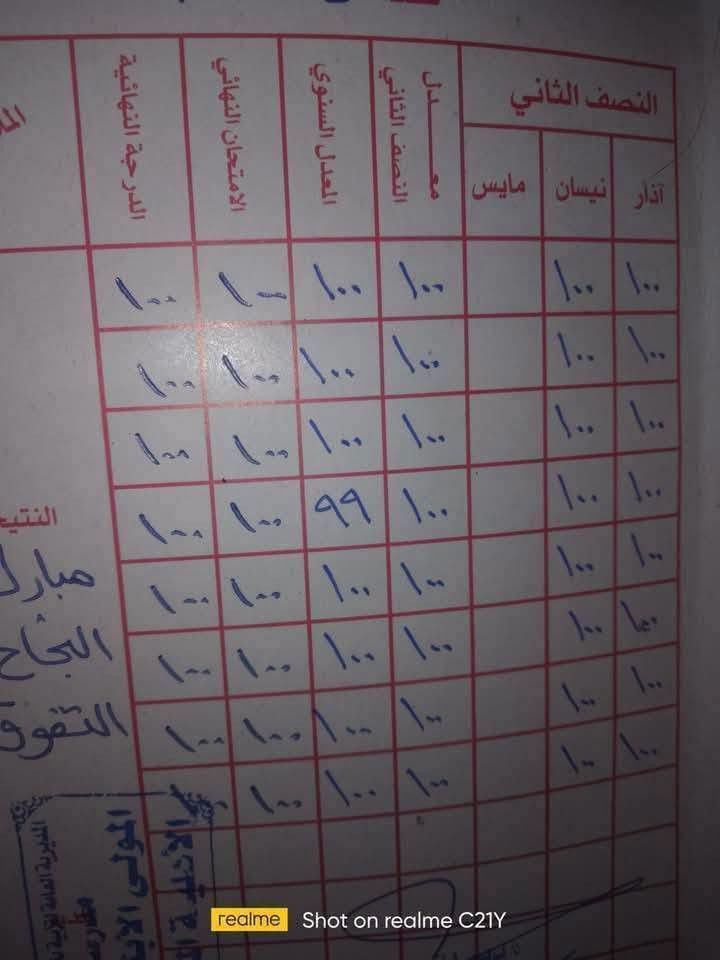 النصف الثاني
آذار نيسان مايس معـــدل النصف الثاني المعدل السنوي الامتحان النهائي الدرجة النهائية
١٠٠ ١٠٠ ١٠٠ ١٠٠ ١٠٠ ١٠٠
١٠٠ ١٠٠ ١٠٠ ١٠٠ ١٠٠ ١٠٠
١٠٠ ١٠٠ ١٠٠ ١٠٠ ١٠٠ ١٠٠
١٠٠ ١٠٠ ١٠٠ ٩٩ ١٠٠ ١٠٠
١٠٠ ١٠٠ ١٠٠ ١٠٠ ١٠٠ ١٠٠
١٠٠ ١٠٠ ١٠٠ ١٠٠ ١٠٠ ١٠٠
١٠٠ ١٠٠ ١٠٠ ١٠٠ ١٠٠ ١٠٠
١٠٠ ١٠٠ ١٠٠ ١٠٠ ١٠٠
النجاح
التفوق
المديرية العامة
realme Shot on realme C21Y